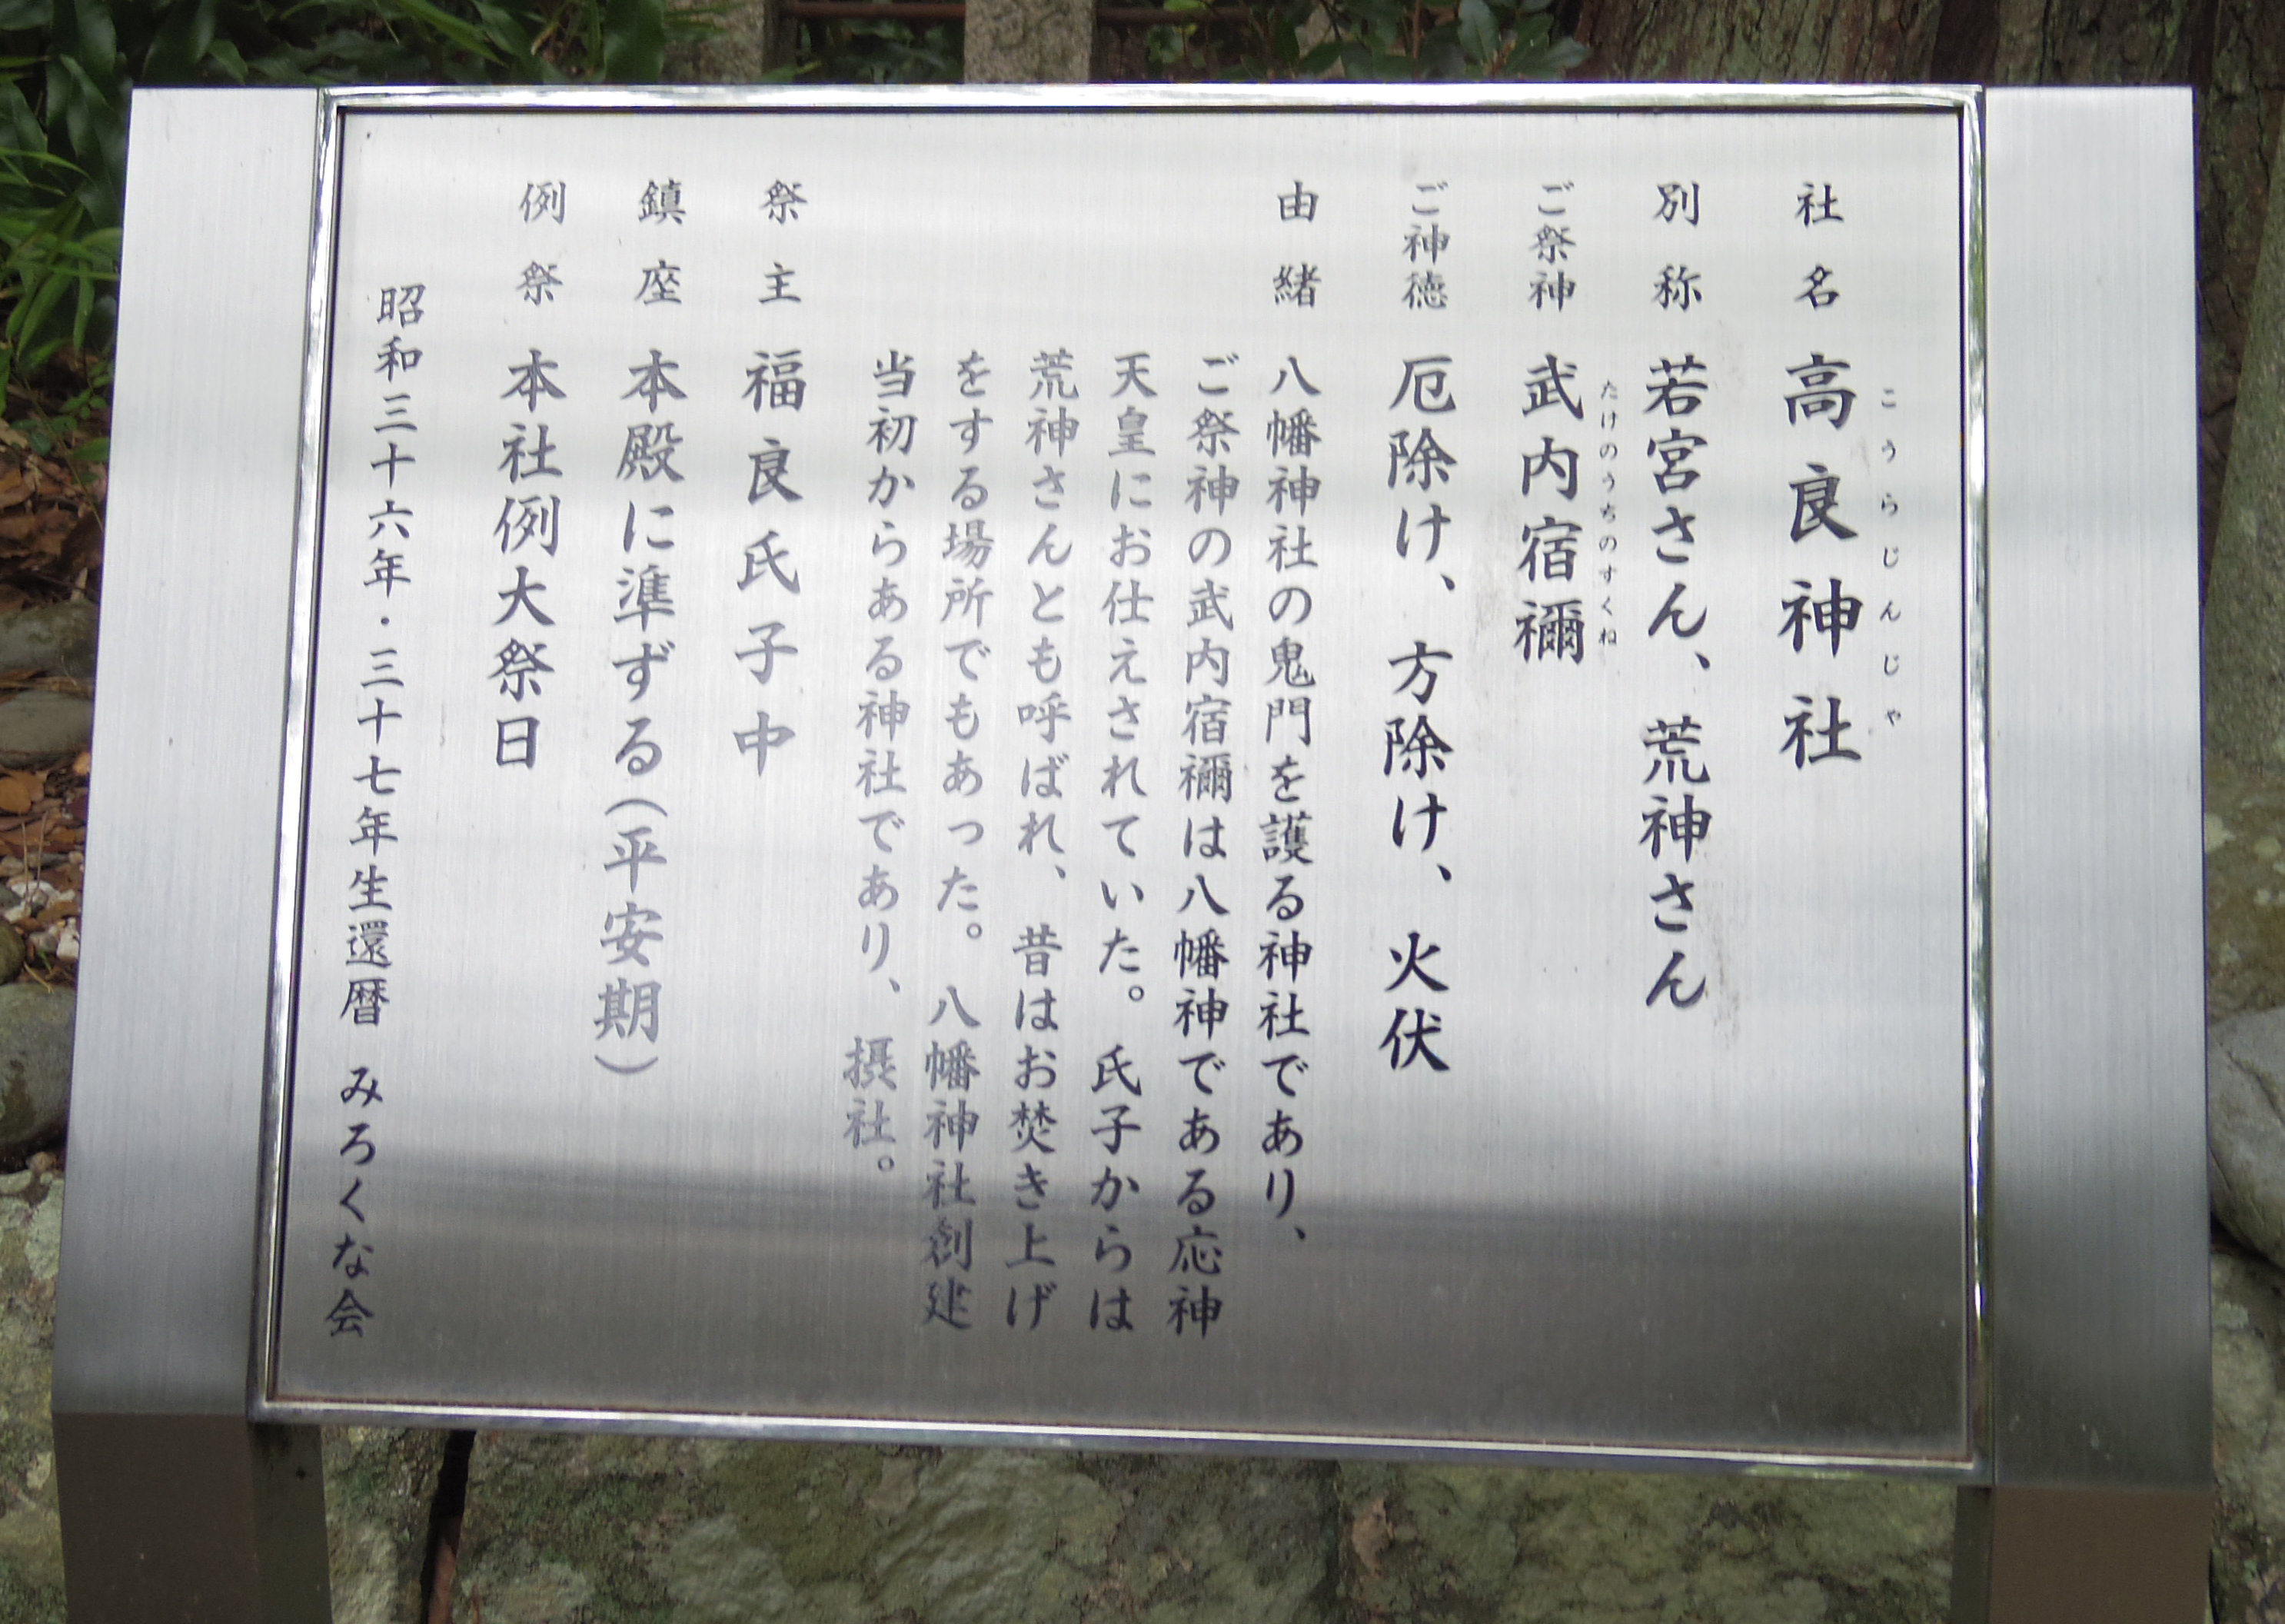 社名 高良神社
こうらじんじゃ
別称 若宮さん、荒神さん
ご祭神 武内宿禰
たけのうちのすくね
ご神徳 厄除け、方除け、火伏
由緒 八幡神社の鬼門を護る神社であり、
ご祭神の武内宿禰は八幡神である応神
天皇にお仕えされていた。氏子からは
荒神さんとも呼ばれ、昔はお焚き上げ
をする場所でもあった。八幡神社創建
当初からある神社であり、摂社。
祭主 福良氏子中
鎮座 本殿に準ずる(平安期)
例祭 本社例大祭日
昭和三十六年・三十七年生還暦 みろくな会